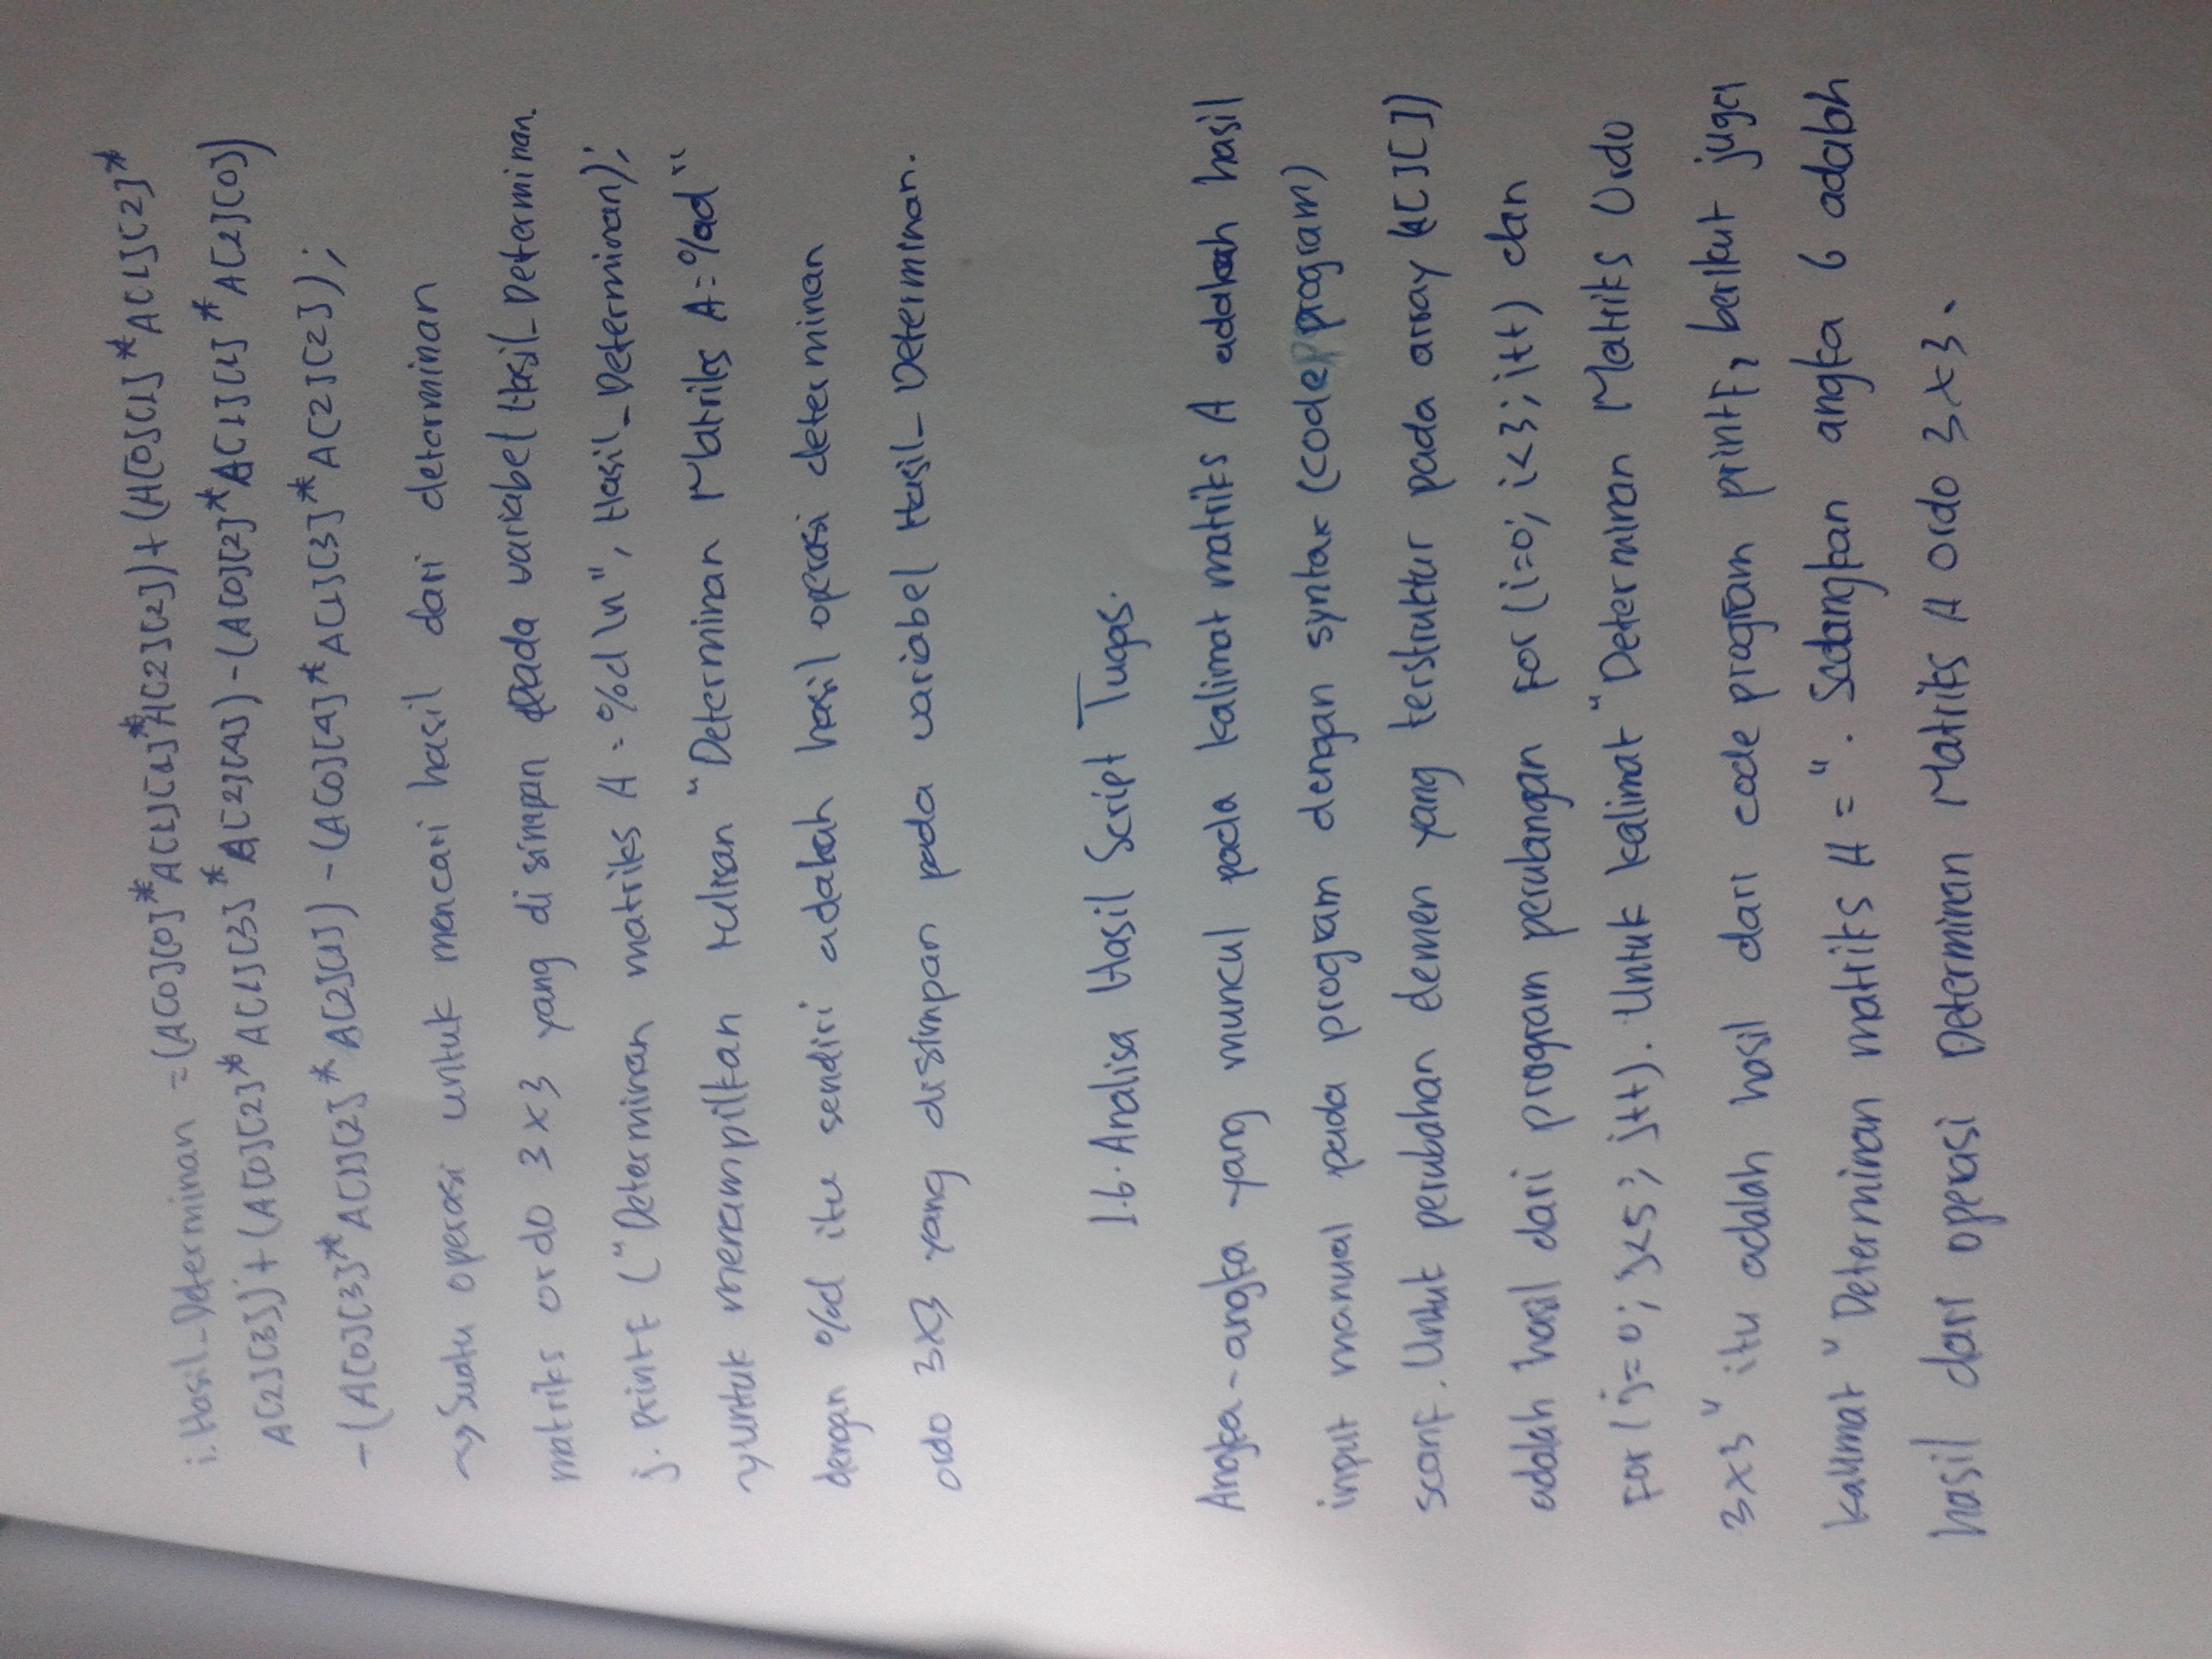 i. Hasil_Determinan = (A[0][0]*A[1][1]*A[2][2]) + (A[0][1]*A[1][2]*
A[2][3]) + (A[0][2]*A[1][3]*A[2][4]) - (A[0][2]*A[1][1]*A[2][0])
- (A[0][3]*A[1][2]*A[2][1]) - (A[0][4]*A[1][3]*A[2][2]);
~> Suatu operasi untuk mencari hasil dari determinan
matriks ordo 3x3 yang disimpan pada variabel Hasil_Determinan.
j. printf ("Determinan matriks A = %d \n", Hasil_Determinan);
~> untuk menampilkan tulisan "Determinan Matriks A = %d"
dengan %d itu sendiri adalah hasil operasi determinan
ordo 3x3 yang disimpan pada variabel Hasil_Determinan.
1.6. Analisa Hasil Script Tugas.
Angka-angka yang muncul pada kalimat matriks A adalah hasil
input manual pada program dengan syntax (code program)
scanf. Untuk perubahan elemen yang terstruktur pada array (A[][])
adalah hasil dari program perulangan for (i=0; i<3; i++) dan
for (j=0; j<5; j++). Untuk kalimat "Determinan Matriks Ordo
3x3" itu adalah hasil dari code program printf, berikut juga
kalimat "Determinan matriks A = ". Sedangkan angka 6 adalah
hasil dari operasi Determinan Matriks A Ordo 3x3.